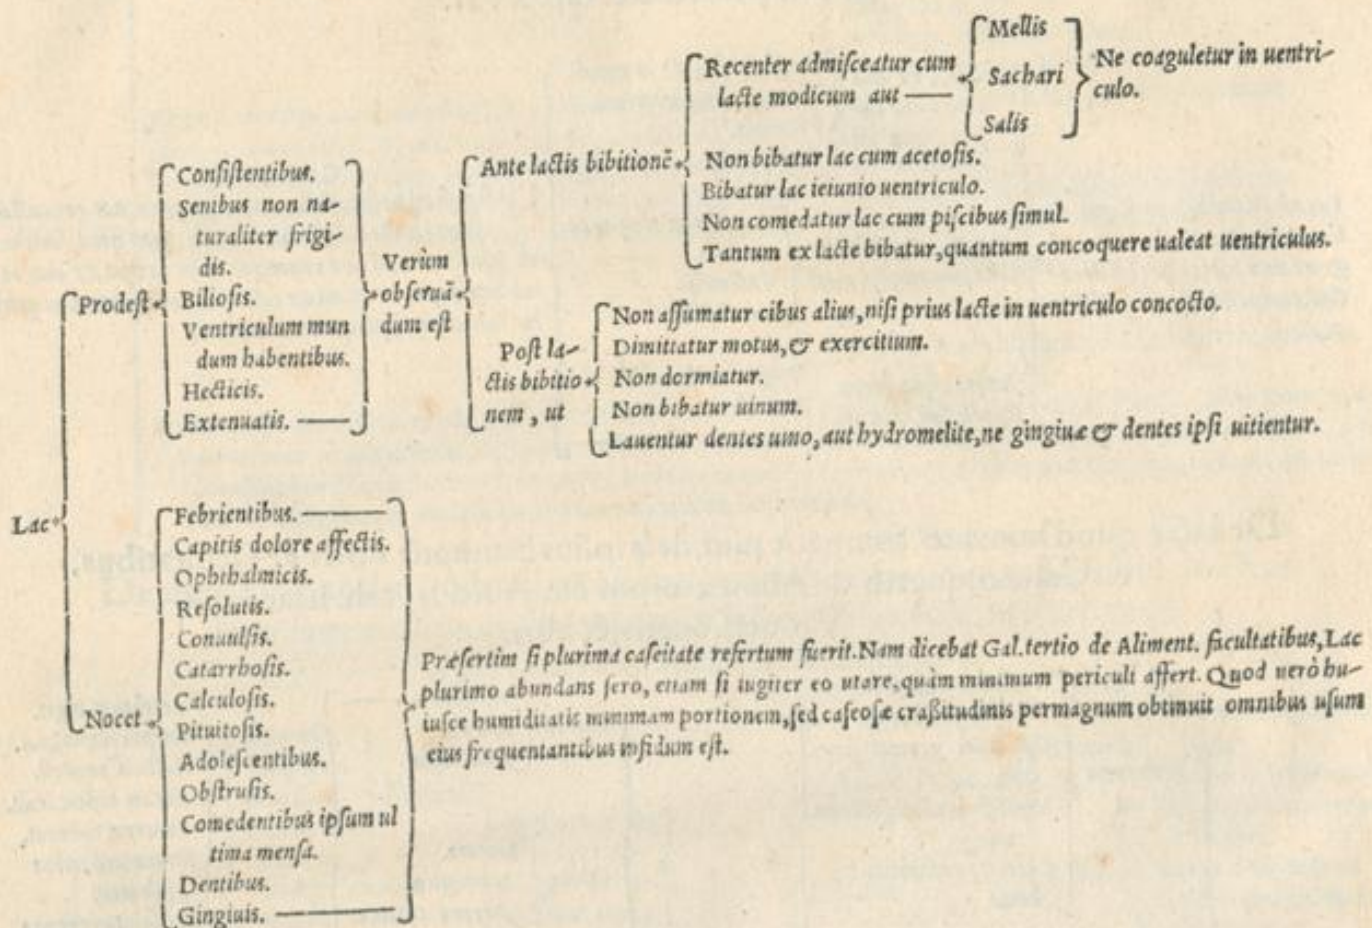 Lac
Prodest
Consistentibus.
Senibus non na-
turaliter frigi-
dis.
Biliosis.
Ventriculum mun
dum habentibus.
Hecticis.
Extenuatis.
Verùm
obseruā-
dum est
Ante lactis bibitionē
Recenter admisceatur cum
lacte modicum aut
Mellis
Sachari
Salis
Ne coaguletur in uentri-
culo.
Non bibatur lac cum acetosis.
Bibatur lac ieiunio uentriculo.
Non comedatur lac cum piscibus simul.
Tantum ex lacte bibatur, quantum concoquere ualeat uentriculus.
Post la-
ctis bibitio
nem, ut
Non assumatur cibus alius, nisi prius lacte in uentriculo concocto.
Dimittatur motus, & exercitium.
Non dormiatur.
Non bibatur uinum.
Lauentur dentes uino, aut hydromelite, ne gingiuæ & dentes ipsi uitientur.
Nocet
Febrientibus.
Capitis dolore affectis.
Ophthalmicis.
Resolutis.
Conuulsis.
Catarrhosis.
Calculosis.
Pituitosis.
Adolescentibus.
Obstrusis.
Comedentibus ipsum ul
tima mensa.
Dentibus.
Gingiuis.
Præsertim si plurima caseitate refertum fuerit. Nam dicebat Gal. tertio de Aliment. facultatibus, Lac
plurimo abundans sero, etiam si iugiter eo utare, quàm minimum periculi affert. Quod uerò hu-
iusce humiditatis minimam portionem, sed caseosæ crassitudinis permagnum obtinuit omnibus usum
eius frequentantibus infidum est.